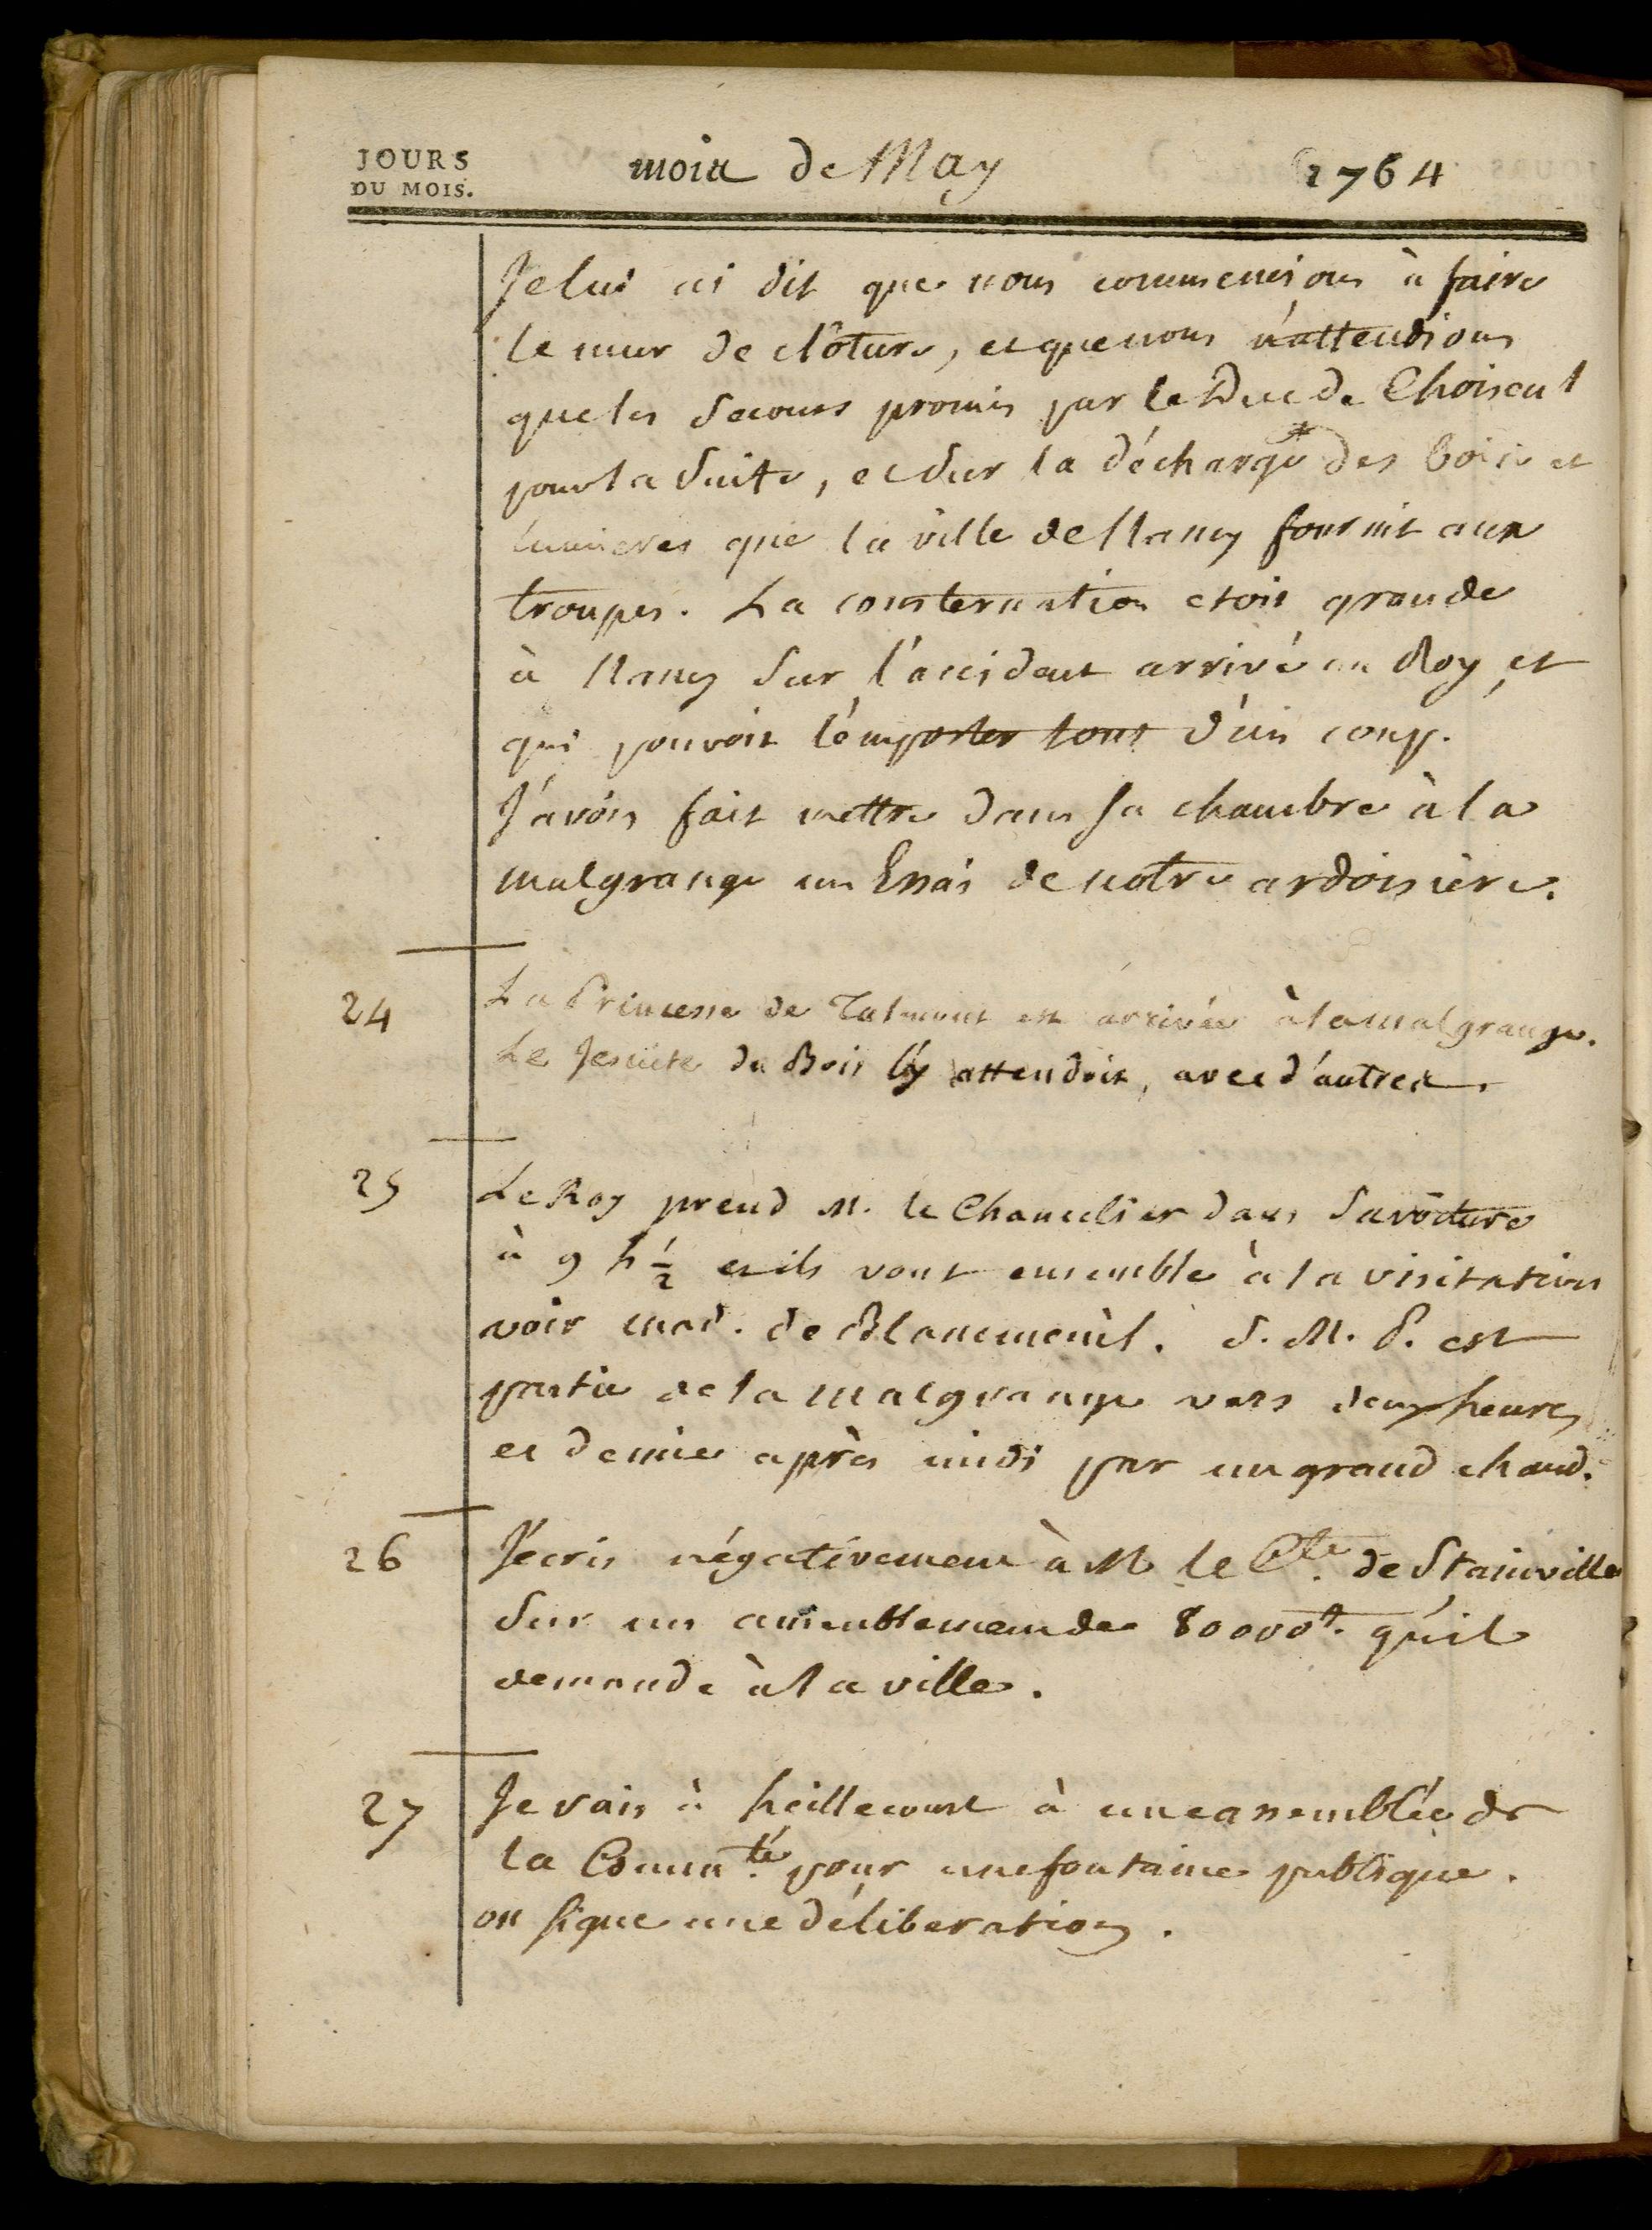 JOURS
DU MOIS.
mois de May 1764
Je lui ai dit que nous commencions à faire
le mur de clôture, et que nous n'attendions
que les secours promis par le Duc de Choiseul
pour la suite, et sur la décharge des bois et
lumieres que la ville de Nancy fournit aux
troupes. La consternation etoit grande
à Nancy sur l'accident arrivé au Roy et
qui pouvoit l'emporter tout d'un coup.
J'avois fait mettre dans sa chambre à la
malgrange un Essai de notre ardoisière.
24 La Princesse de Talmont est arrivée à la malgrange.
Le Jesuite du Bois l'y attendoit, avec d'autres.
25 Le Roy prend M. le Chancelier dans sa voiture
à 9 h 1/2 et ils vont ensemble à la visitation
voir mad. de Blancmenil. S. M. P. est
partie de la malgrange vers deux heures
et demie après midi par un grand chaud.
26 J'écris négativement à M le Cte. de Stainville
sur un ameublement de 80000 ₶. qu'il
demande à la ville.
27 Je vais à heillecourt à une assemblée de
la Commté. pour une fontaine publique.
on signe une déliberation.